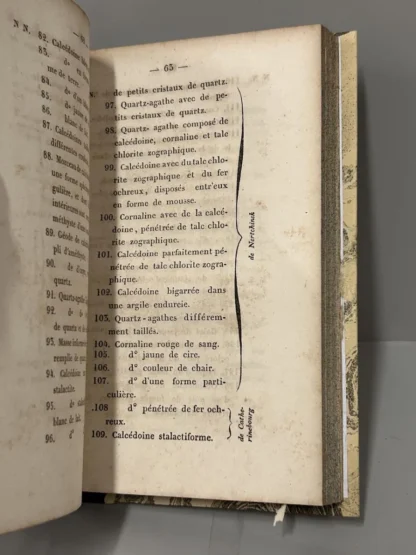 N N. 82. Calcédoine
83. d°
me de terre.
84. d°
85. de
86. blanc
87. Calcédoines
différentes
88. Morceau de
une forme
gulière, et
intérieures
méthyste d'un
89. Géode de
pli d'améthys
90. d°
quartz.
91. Quartz-agath
92. d° d°
de quartz et de
93. Masse informe
remplie de
94. Calcédoine
stalactite.
95. d°
blanc de lait.
96. d°
— 65 —
de petits cristaux de quartz.
97. Quartz-agathe avec de pe-
tits cristaux de quartz.
98. Quartz- agathe composé de
calcédoine, cornaline et talc
chlorite zographique.
99. Calcédoine avec du talc chlo-
rite zographique et du fer
ochreux, disposés entr'eux
en forme de mousse.
100. Cornaline avec de la calcé-
doine, pénétrée de talc chlo-
rite zographique.
101. Calcédoine parfaitement pé-
nétrée de talc chlorite zogra-
phique.
102. Calcédoine bigarrée dans
une argile endurcie.
103. Quartz-agathes différem-
ment taillés.
104. Cornaline rouge de sang.
105. d° jaune de cire.
106. d° couleur de chair.
107. d° d'une forme parti-
culière.
de Nertchinsk
.108 d° pénétrée de fer och-
reux.
109. Calcédoine stalactiforme.
de Cathe-
rinebourg